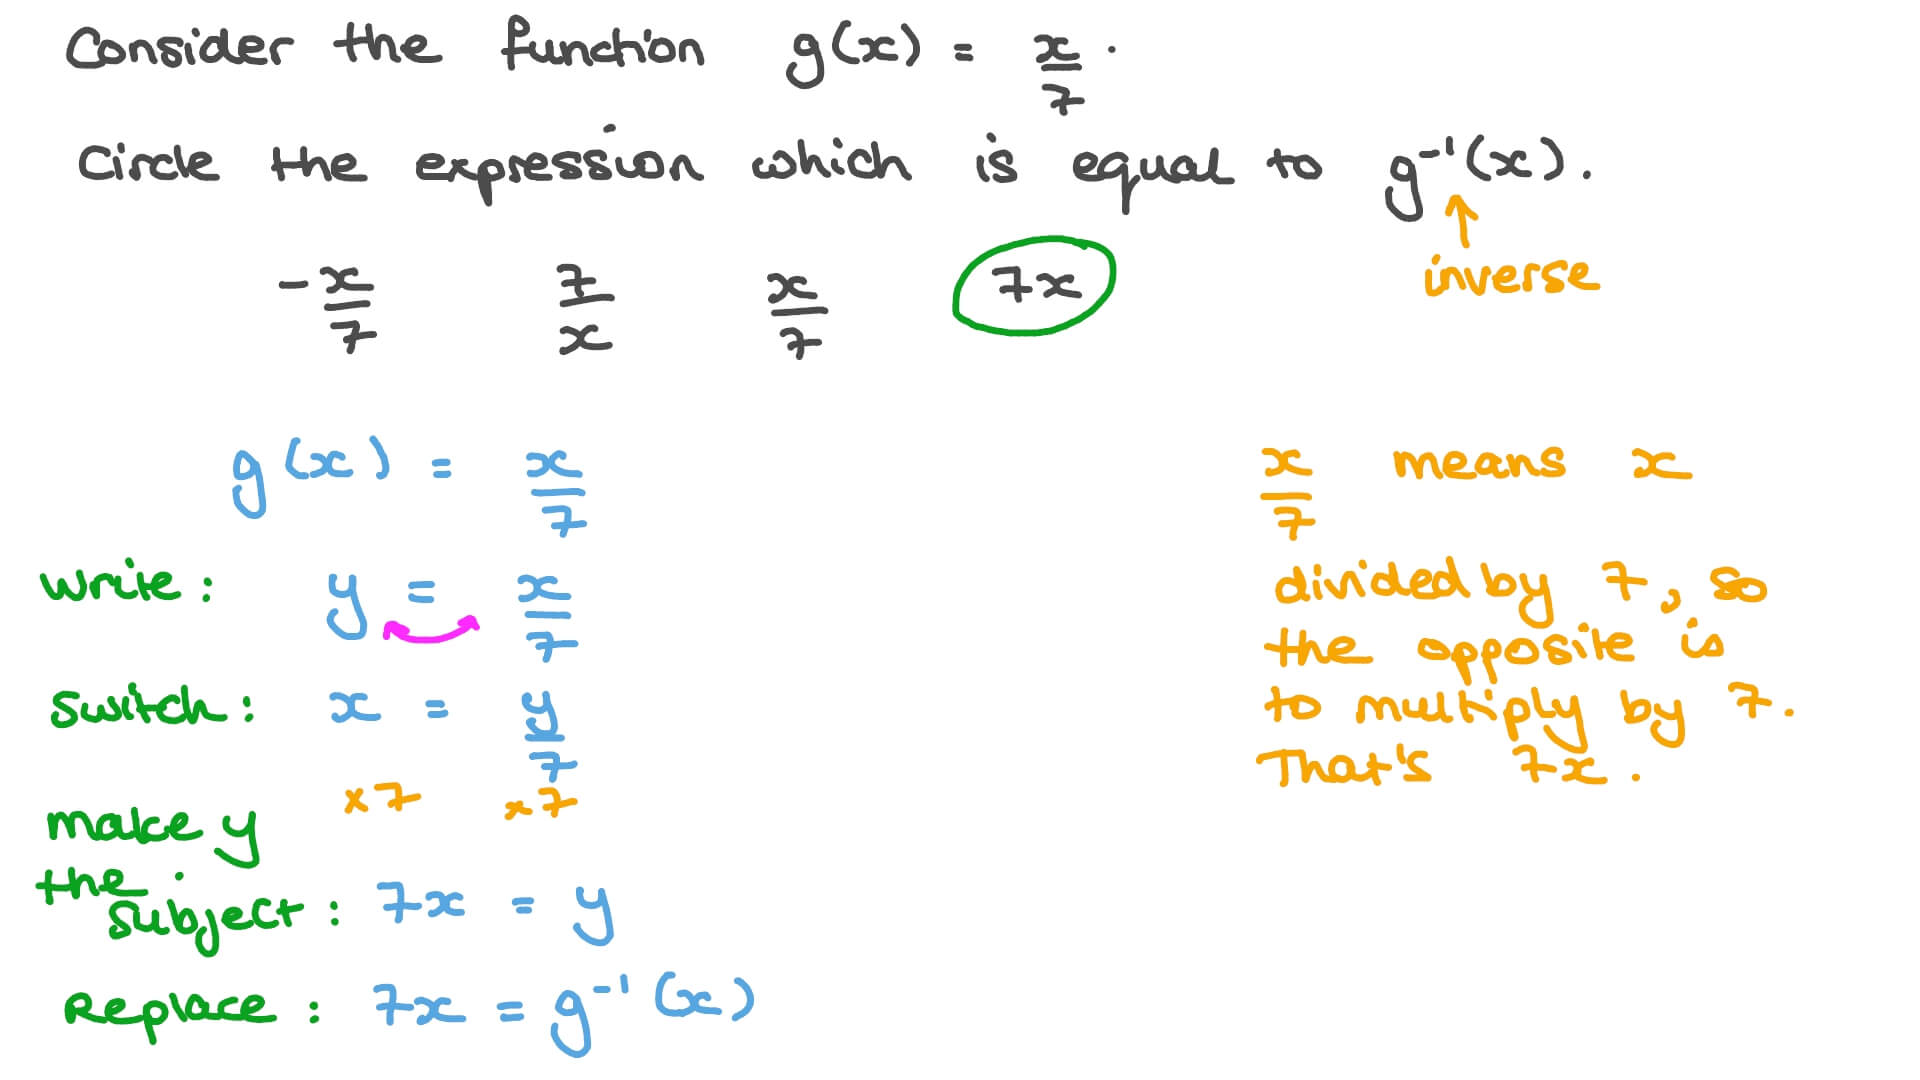 Consider the function g(x) = x/7.
Circle the expression which is equal to g⁻¹(x).
inverse
-x/7 7/x x/7 7x
g(x) = x/7
write: y = x/7
switch: x = y/7
×7 ×7
make y
the
subject: 7x = y
Replace: 7x = g⁻¹(x)
x/7 means x
divided by 7, so
the opposite is
to multiply by 7.
That's 7x.